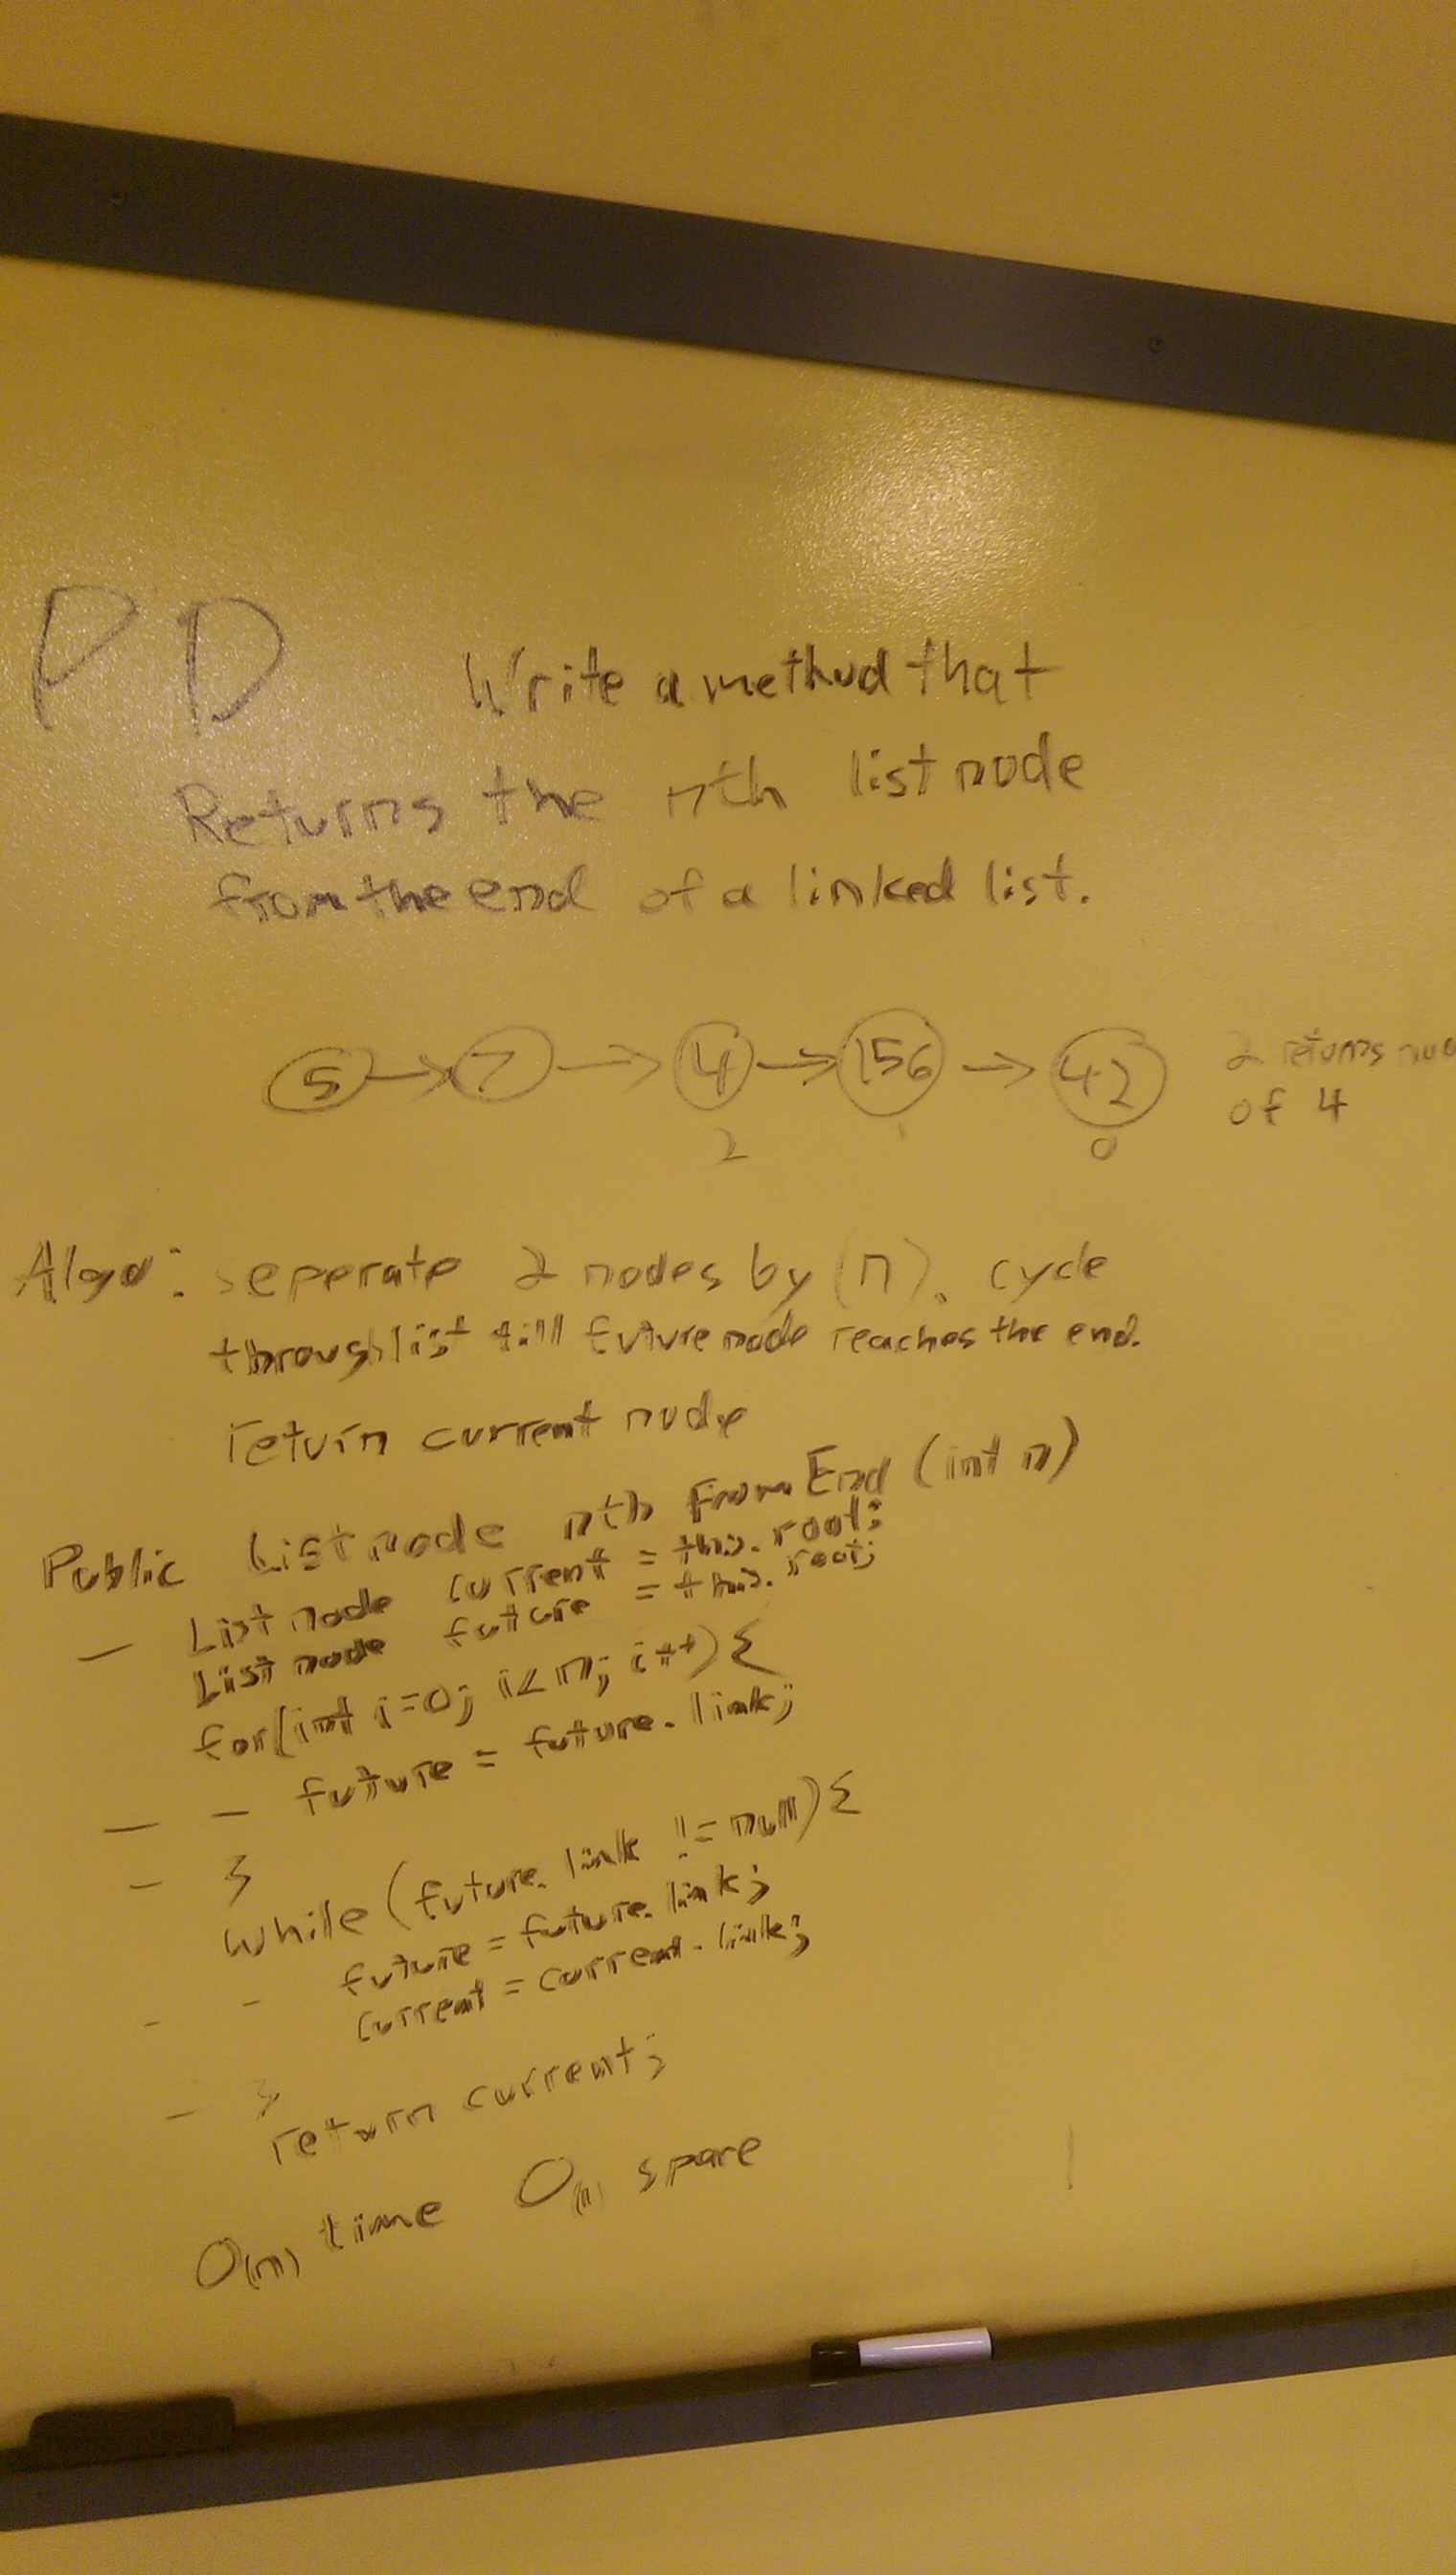 PD
Write a method that
Returns the nth list node
from the end of a linked list.
5 → 7 → 4 → 156 → 42
2 1 0
2 returns
of 4
Algo: seperate 2 nodes by (n). cycle
through list till future node reaches the end.
return current node
Public Listnode nth FromEnd (int n)
— List node current = this.root;
List node future = this.root;
for(int i=0; i<n; i++){
— — future = future.link;
— }
while (future.link != null){
- - future = future.link;
current = current.link;
— }
return current;
O(n) time O(1) space